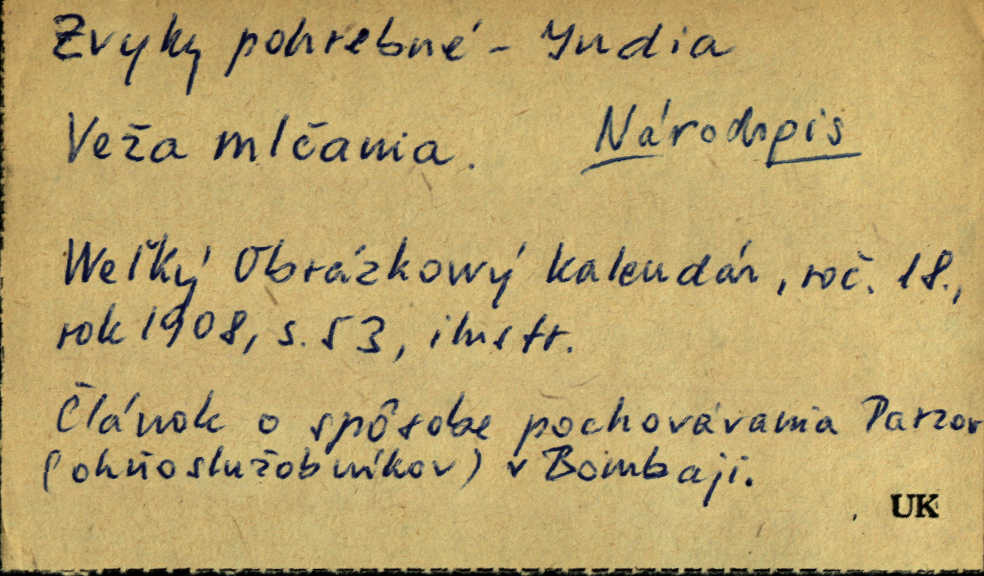 Zvyky pohrebné - India
Veža mlčania. Národopis
Weľký Obrázkowý kalendár, roč. 18.,
rok 1908, s. 53, ilustr.
Článok o spôsobe pochovávania Parzov
(ohňoslužobníkov) v Bombaji.
UK